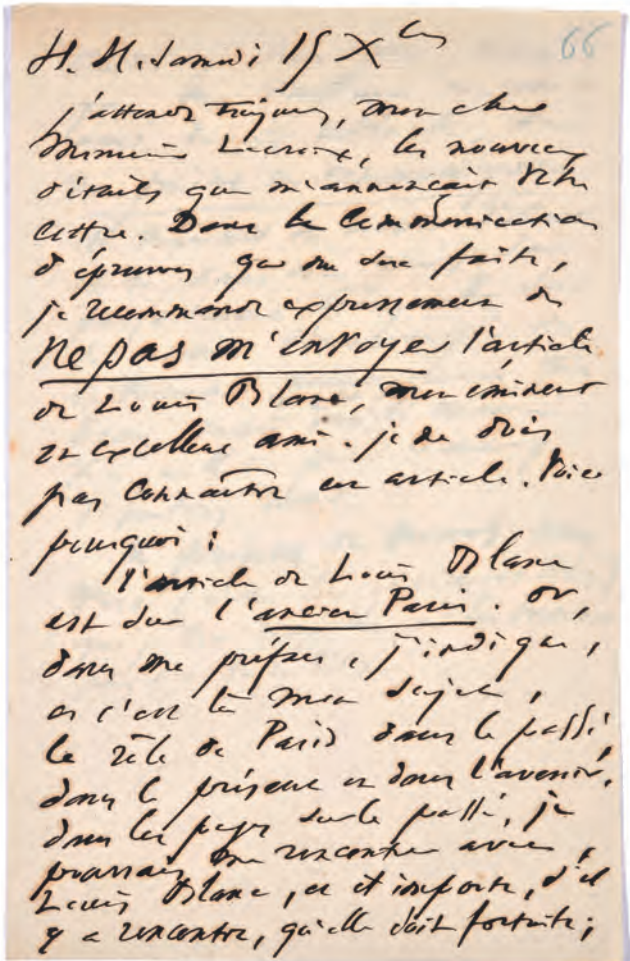 H. H. samedi 15 Xbre
66
j'attends toujours, mon cher
Monsieur Lacroix, les nouveaux
détails que m'annonçait votre
lettre. Dans la communication
d'épreuves qui me sera faite,
je recommande expressément de
ne pas m'envoyer l'article
de Louis Blanc, mon éminent
et excellent ami. je ne dois
pas connaître cet article. Voici
pourquoi :
l'article de Louis Blanc
est sur l'ancien Paris. Or,
dans ma préface, j'indique,
et c'est là mon sujet,
le rôle de Paris dans le passé,
dans le présent et dans l'avenir.
dans les pages sur le passé, je
pourrais me rencontrer avec
Louis Blanc, et il importe, s'il
y a rencontre, qu'elle soit fortuite ;